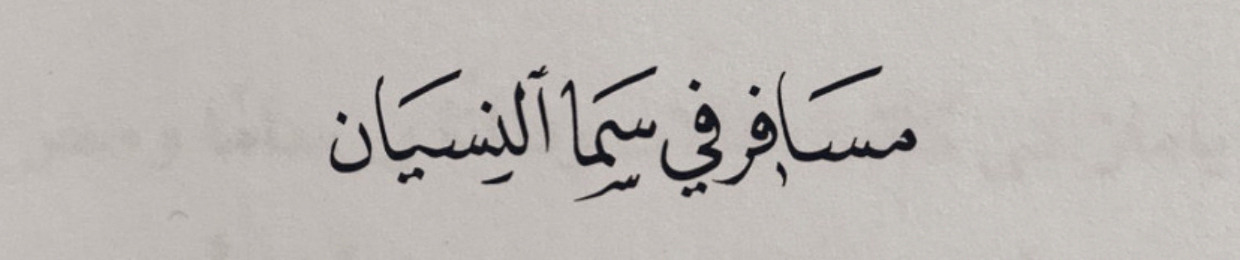 مسافر في سما النسيان